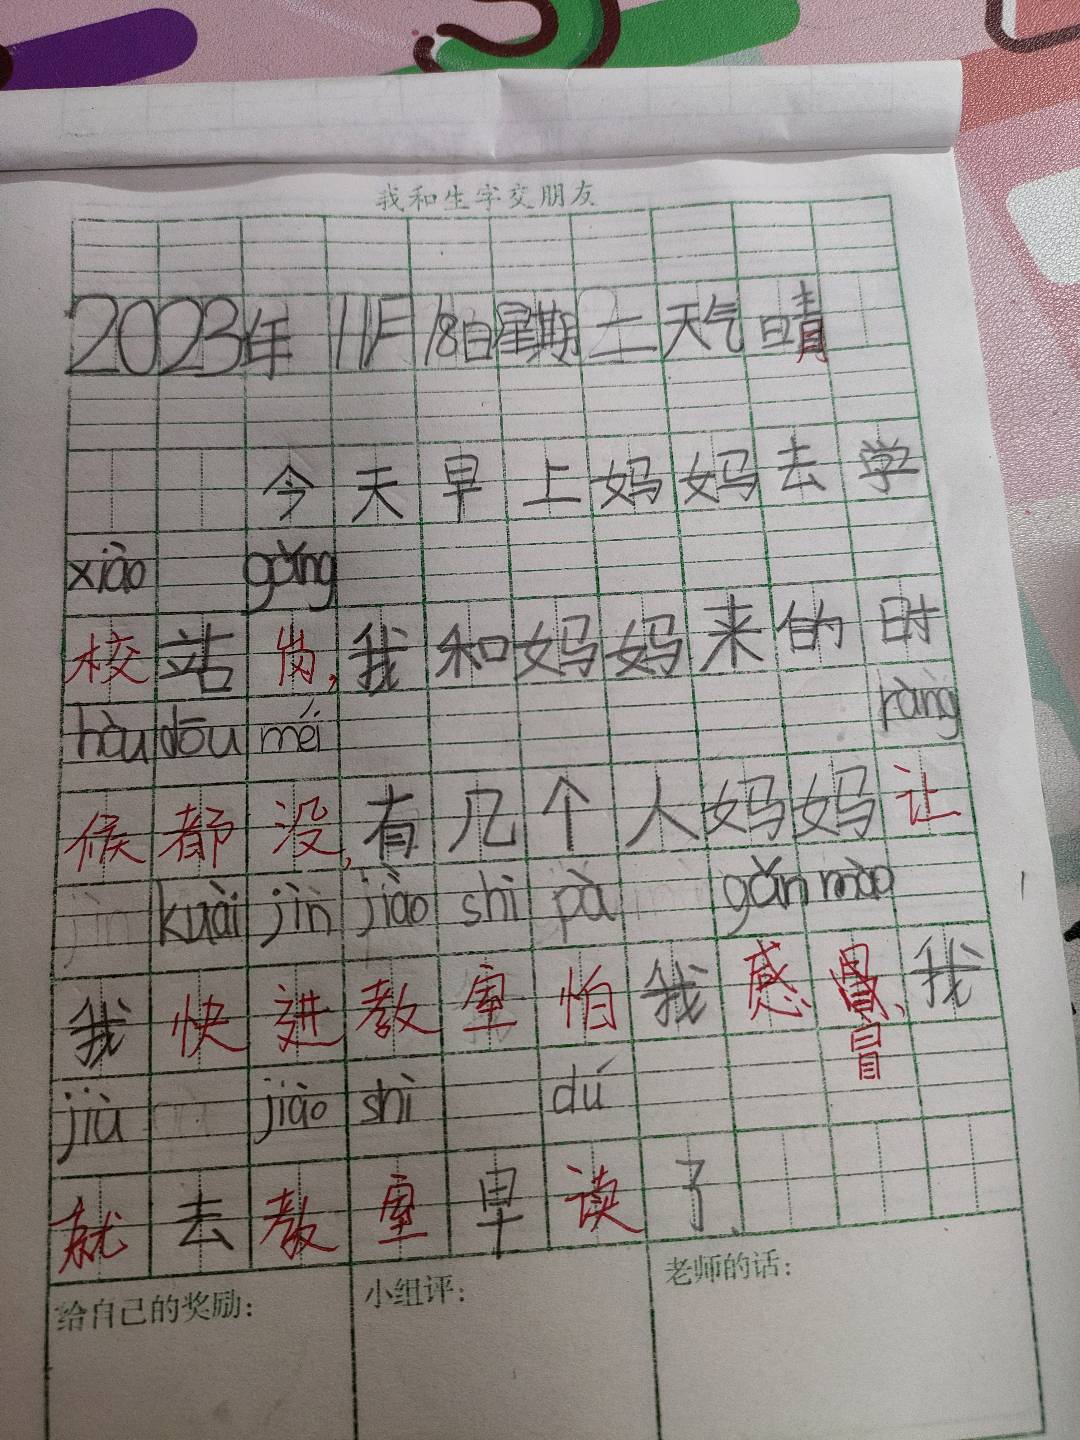 我和生字交朋友
2023年11月18日星期二天气晴
今天早上妈妈去学
xiào gǎng
校站岗,我和妈妈来的时
hòu dōu méi ràng
候都没,有几个人妈妈让
jìn kuài jìn jiào shì pà gǎn mào
我快进教室怕我感冒、我
冒
jiù jiào shì dú
就去教室早读了、
给自己的奖励:
小组评:
老师的话: